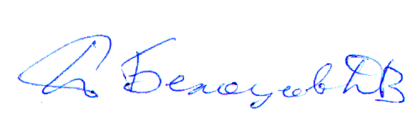 Белоусов ДВ